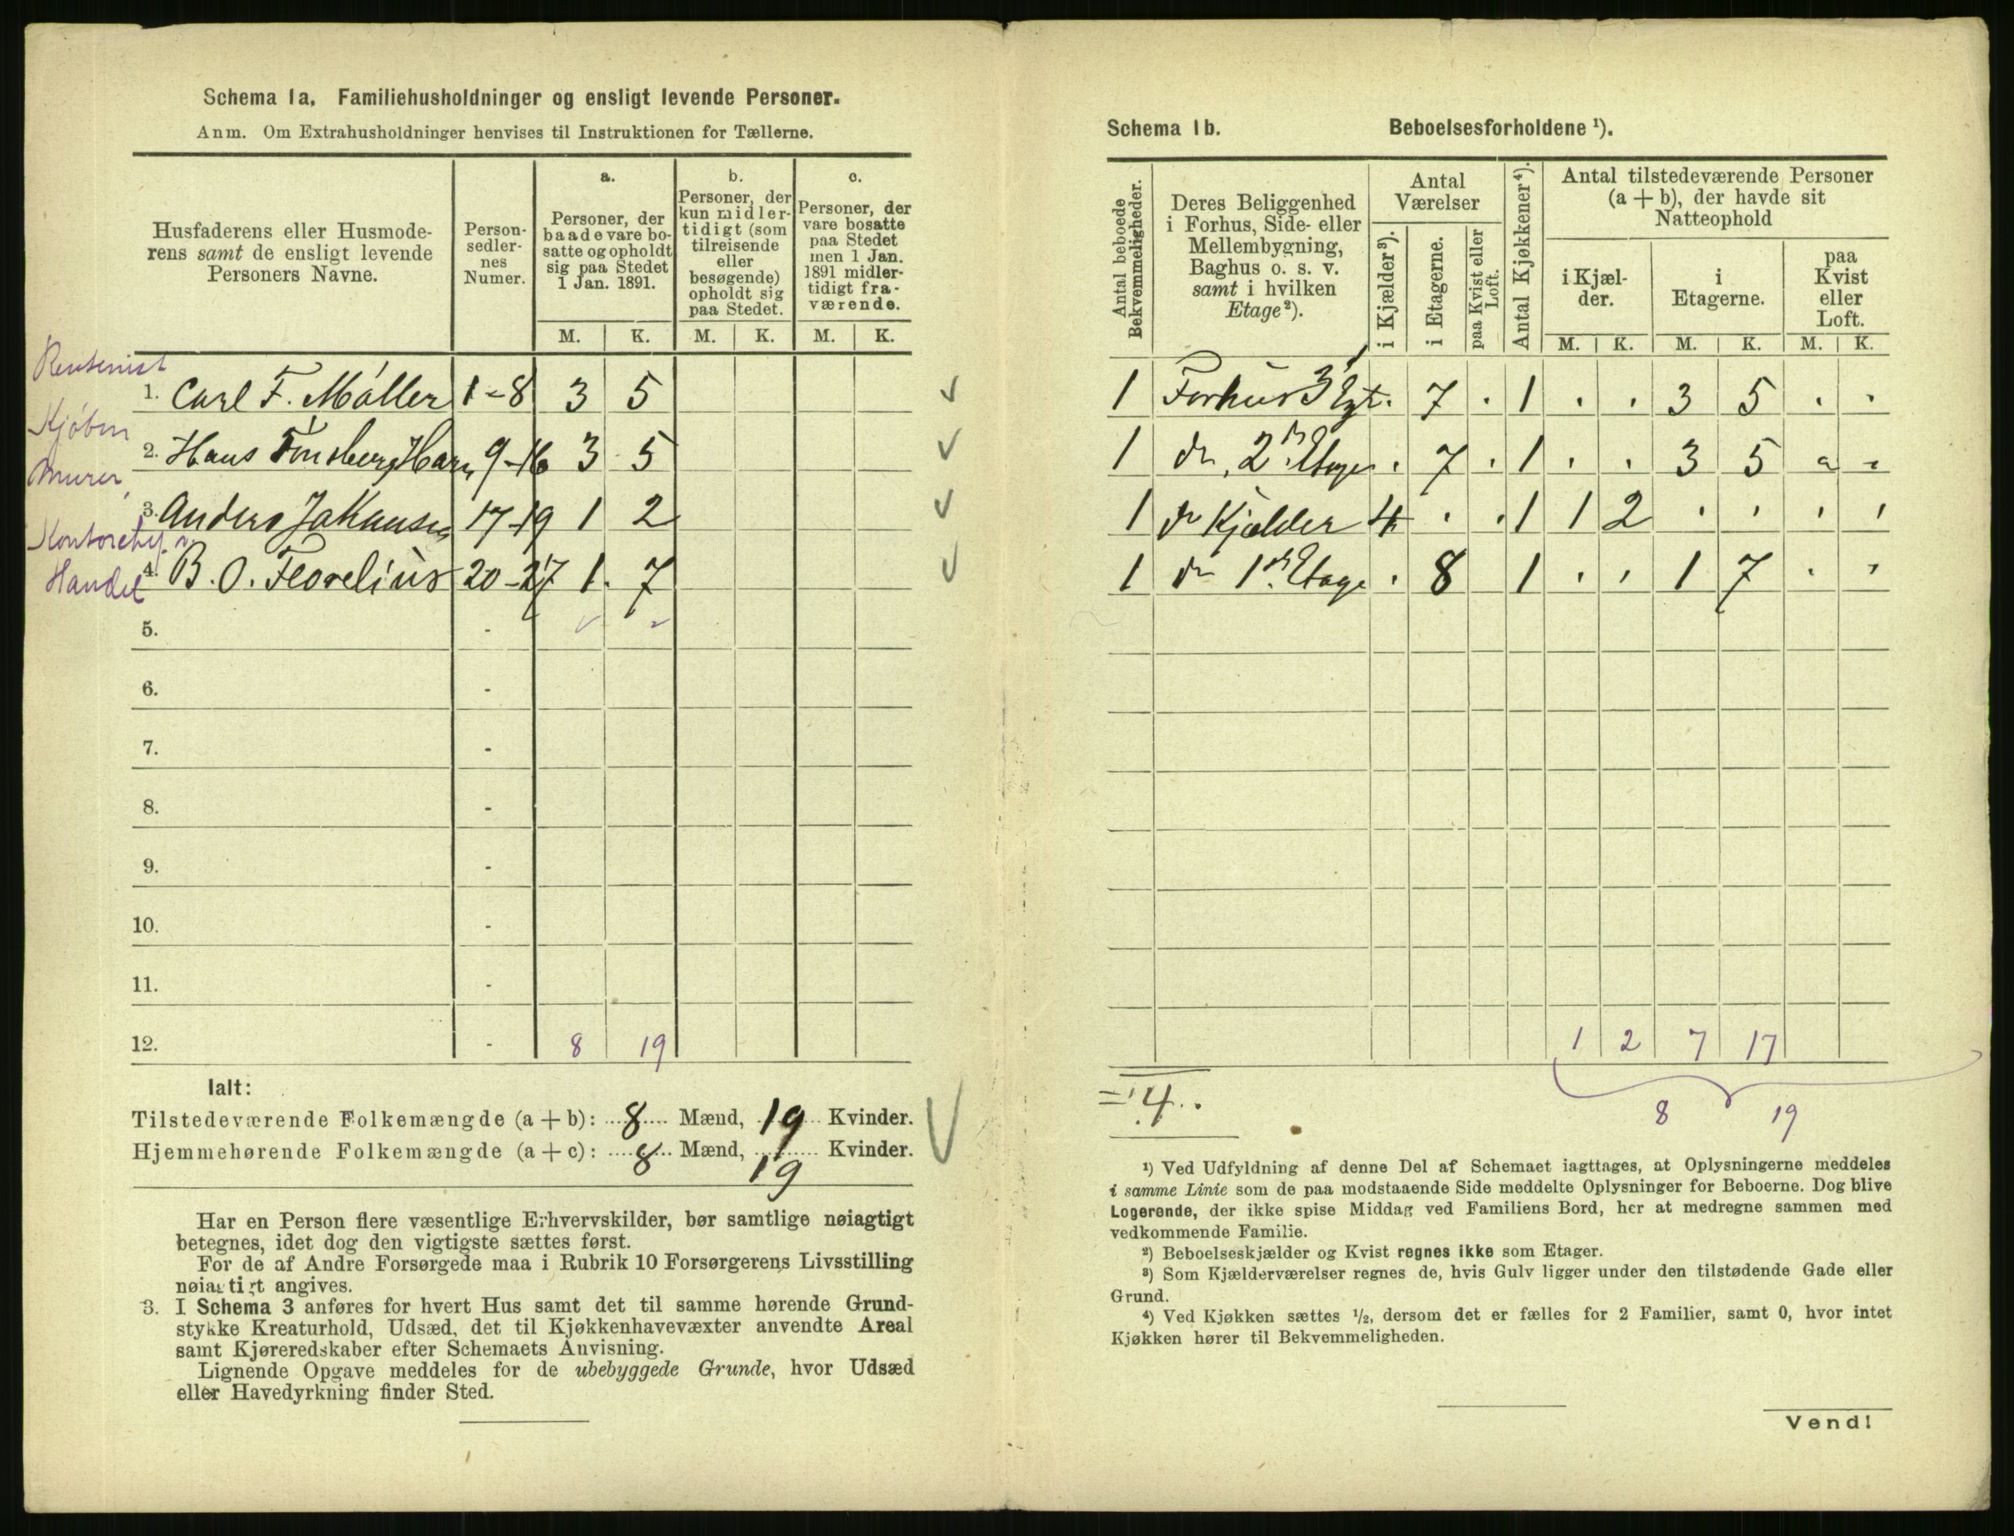 Schema 1a. Familiehusholdninger og ensligt levende Personer.
Anm. Om Extrahusholdninger henvises til Instruktionen for Tællerne.
Husfaderens eller Husmoderens samt de ensligt levende Personers Navne.
Person-sedler-nes Numer.
a.
Personer, der baade vare bosatte og opholdt sig paa Stedet 1 Jan. 1891.
b.
Personer, der kun midlertidigt (som tilreisende eller besøgende) opholdt sig paa Stedet.
c.
Personer, der vare bosatte paa Stedet men 1 Jan. 1891 midlertidigt fraværende.
M. K. M. K. M. K.
Rentenist
1. Carl F. Møller 1-8 3 5
Kjøbm
2. Hans Tønsberg 9-16 3 5
Murer
3. Anders Johansen 17-19 1 2
Handel
4. B. O. Florelius 20-27 1 7
5. -
6. -
7. -
8. -
9. -
10. -
11. -
12. - 8 19
Ialt:
Tilstedeværende Folkemængde (a + b): 8 Mænd, 19 Kvinder.
Hjemmehørende Folkemængde (a + c): 8 Mænd, 19 Kvinder.
Har en Person flere væsentlige Erhvervskilder, bør samtlige nøiagtigt
betegnes, idet dog den vigtigste sættes først.
For de af Andre Forsørgede maa i Rubrik 10 Forsørgerens Livsstilling
nøiagtigt angives.
3. I Schema 3 anføres for hvert Hus samt det til samme hørende Grund-
stykke Kreaturhold, Udsæd, det til Kjøkkenhavevæxter anvendte Areal
samt Kjøreredskaber efter Schemaets Anvisning.
Lignende Opgave meddeles for de ubebyggede Grunde, hvor Udsæd
eller Havedyrkning finder Sted.
Schema 1b. Beboelsesforholdene ¹).
Antal beboede Bekvemmeligheder.
Deres Beliggenhed i Forhus, Side- eller Mellembygning, Baghus o. s. v. samt i hvilken Etage²).
Antal Værelser
i Kjælder³).
i Etagerne.
paa Kvist eller Loft.
Antal Kjøkkener⁴).
Antal tilstedeværende Personer (a + b), der havde sit Natteophold
i Kjæl-der.
i Etagerne.
paa Kvist eller Loft.
M. K. M. K. M. K.
1 Forhus 3 Etg. . 7 . 1 . . 3 5 . .
1 do 2 Etage . 7 . 1 . . 3 5 . .
1 do Kjælder 4 . . 1 1 2 . . . .
1 do 1 Etage . 8 . 1 . . 1 7 . .
1 2 7 17
= 4
8 19
¹) Ved Udfyldning af denne Del af Schemaet iagttages, at Oplysningerne meddeles
i samme Linie som de paa modstaaende Side meddelte Oplysninger for Beboerne. Dog blive
Logerende, der ikke spise Middag ved Familiens Bord, her at medregne sammen med
vedkommende Familie.
²) Beboelseskjælder og Kvist regnes ikke som Etager.
³) Som Kjælderværelser regnes de, hvis Gulv ligger under den tilstødende Gade eller
Grund.
⁴) Ved Kjøkken sættes ½, dersom det er fælles for 2 Familier, samt 0, hvor intet
Kjøkken hører til Bekvemmeligheden.
Vend!